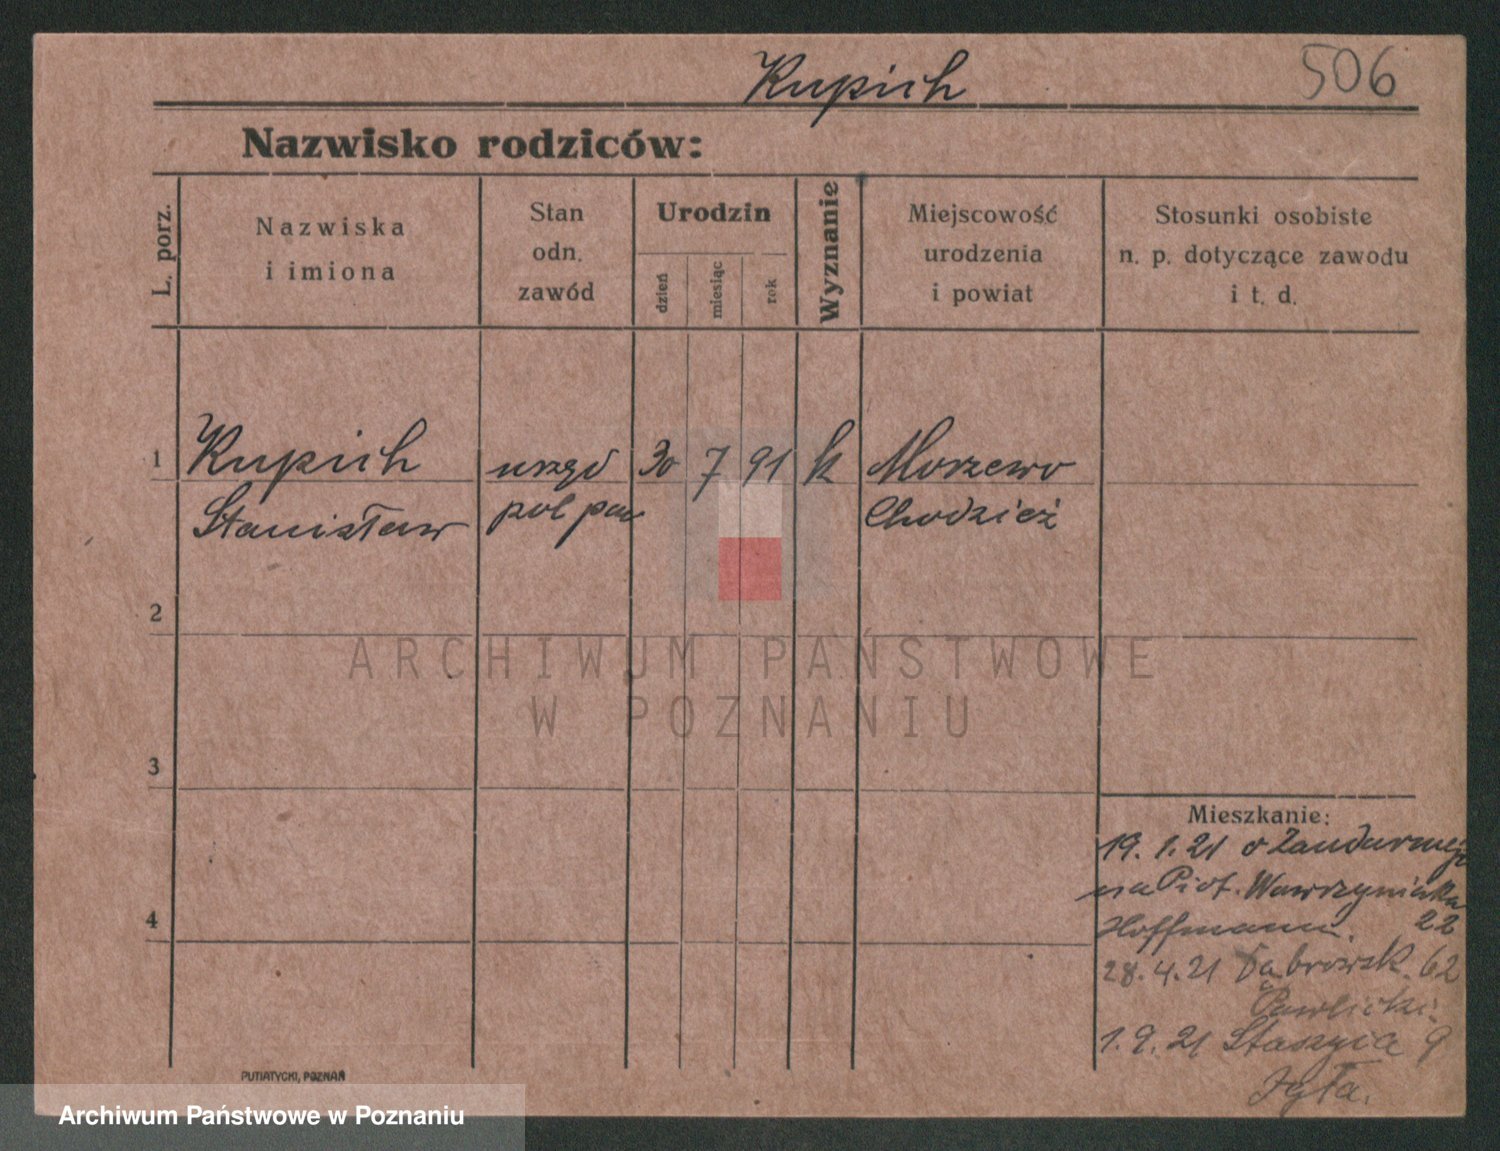 Kupich
506
Nazwisko rodziców:
L. porz.
Nazwiska
i imiona
Stan
odn.
zawód
Urodzin
dzień
miesiąc
rok
Wyznanie
Miejscowość
urodzenia
i powiat
Stosunki osobiste
n. p. dotyczące zawodu
i t. d.
1
Kupich
Stanisław
urzęd
pol pań
30 7 91 k
Morzewo
Chodzież
2
3
4
ARCHIWUM PAŃSTWOWE
W POZNANIU
Mieszkanie:
19. 1. 21 o Żandarmerja
na Piotr. Wawrzyniaka
Hoffmann. 22
28. 4. 21 Dąbrowsk. 62
Pawlicki.
1. 9. 21 Staszyca 9
Igła.
PUTIATYCKI, POZNAŃ
Archiwum Państwowe w Poznaniu